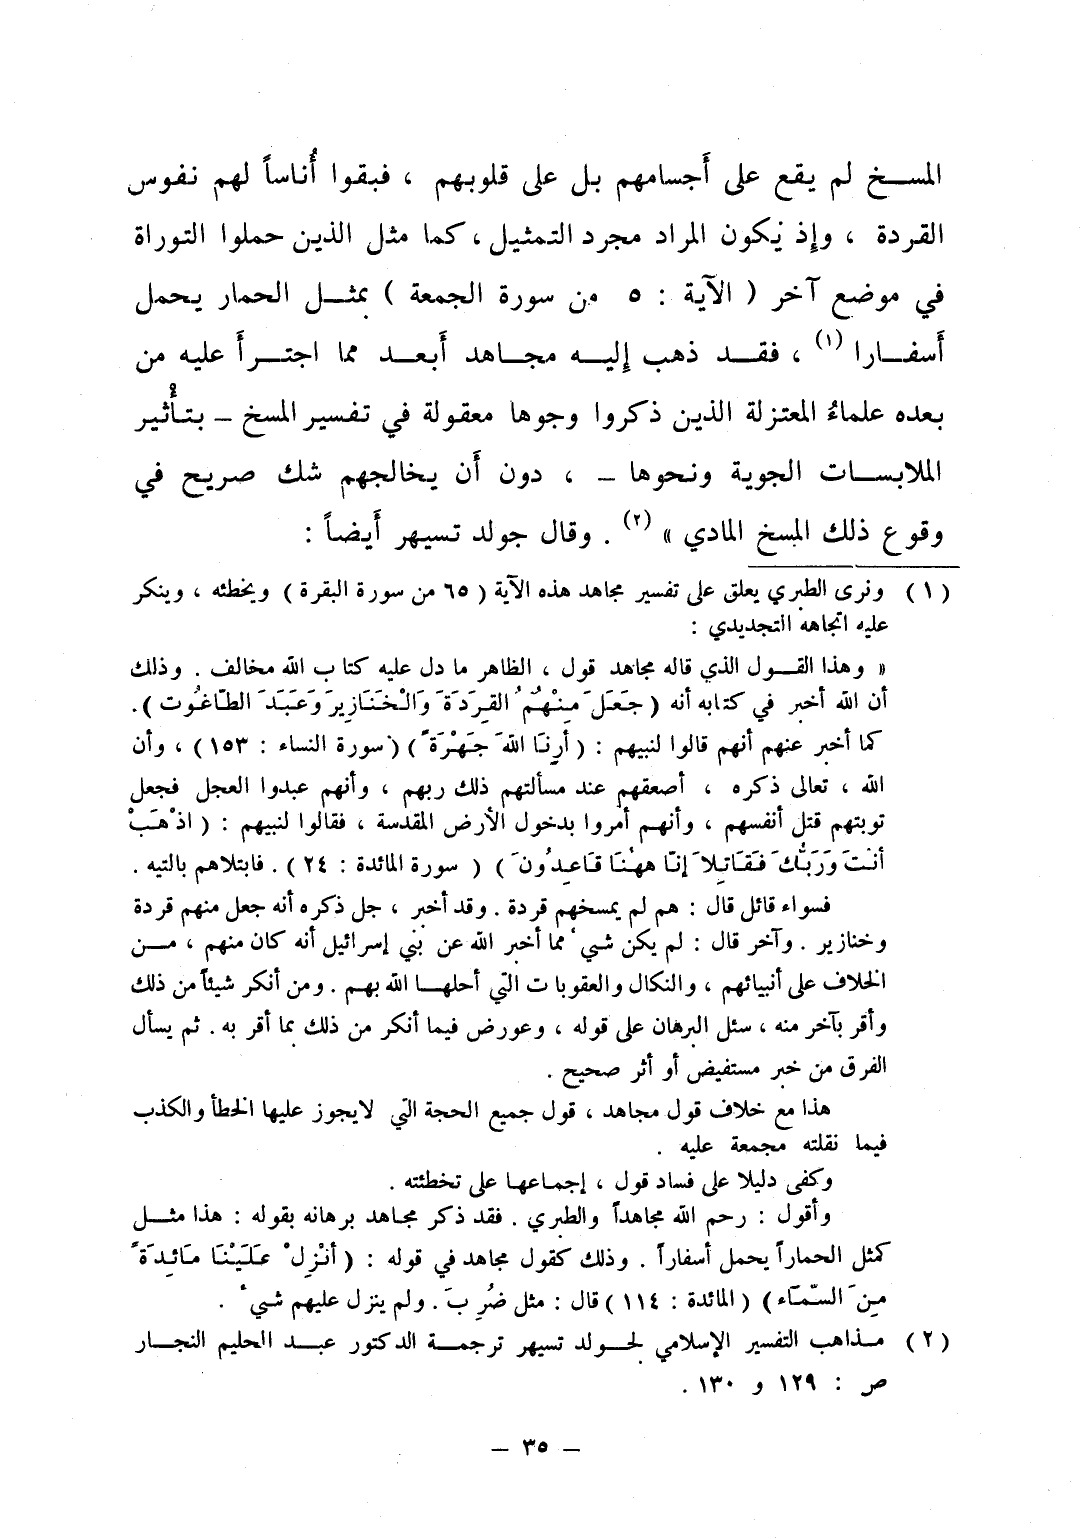 المسخ لم يقع على أَجسامهم بل على قلوبهم ، فبقوا أُناساً لهم نفوس
القردة ، وإِذ يكون المراد مجرد التمثيل ، كما مثل الذين حملوا التوراة
في موضع آخر ( الآية : ٥ من سورة الجمعة ) بمثل الحمار يحمل
أَسفارا (١) ، فقد ذهب إِليه مجاهد أَبعد مما اجترأَ عليه من
بعده علماءُ المعتزلة الذين ذكروا وجوها معقولة في تفسير المسخ – بتأْثير
الملابسات الجوية ونحوها – ، دون أَن يخالجهم شك صريح في
وقوع ذلك المسخ المادي » (٢) . وقال جولد تسيهر أَيضاً :
( ١ ) ونرى الطبري يعلق على تفسير مجاهد هذه الآية ( ٦٥ من سورة البقرة ) ويخطئه ، وينكر
عليه اتجاهه التجديدي :
« وهذا القول الذي قاله مجاهد قول ، الظاهر ما دل عليه كتاب الله مخالف . وذلك
أن الله أخبر في كتابه أنه ( جَعَلَ مِنْهُمُ القِرَدَةَ وَالْخَنَازِيرَ وَعَبَدَ الطَّاغُوت ) .
كما أخبر عنهم أنهم قالوا لنبيهم : ( أرِنَا اللهَ جَهْرَةً ) ( سورة النساء : ١٥٣ ) ، وأن
الله ، تعالى ذكره ، أصعقهم عند مسألتهم ذلك ربهم ، وأنهم عبدوا العجل فجعل
توبتهم قتل أنفسهم ، وأنهم أمروا بدخول الأرض المقدسة ، فقالوا لنبيهم : ( اذْهَبْ
أنْتَ وَرَبُّكَ فَقَاتِلاَ إنَّا هَهُنَا قَاعِدُونَ ) ( سورة المائدة : ٢٤ ) . فابتلاهم بالتيه .
فسواء قائل قال : هم لم يمسخهم قردة . وقد أخبر ، جل ذكره أنه جعل منهم قردة
وخنازير . وآخر قال : لم يكن شيء مما أخبر الله عن بني إسرائيل أنه كان منهم ، من
الخلاف على أنبيائهم ، والنكال والعقوبات التي أحلها الله بهم . ومن أنكر شيئاً من ذلك
وأقر بآخر منه ، سئل البرهان على قوله ، وعورض فيما أنكر من ذلك بما أقر به . ثم يسأل
الفرق من خبر مستفيض أو أثر صحيح .
هذا مع خلاف قول مجاهد ، قول جميع الحجة التي لايجوز عليها الخطأ والكذب
فيما نقلته مجمعة عليه .
وكفى دليلا على فساد قول ، إجماعها على تخطئته .
وأقول : رحم الله مجاهداً والطبري . فقد ذكر مجاهد برهانه بقوله : هذا مثل
كمثل الحماراً يحمل أسفاراً . وذلك كقول مجاهد في قوله : ( أنْزِلْ عَلَيْنَا مَائِدَةً
مِنَ السَّمَاء ) ( المائدة : ١١٤ ) قال : مثل ضُرِبَ . ولم ينزل عليهم شيء .
( ٢ ) مذاهب التفسير الإسلامي لجولد تسيهر ترجمة الدكتور عبد الحليم النجار
ص : ١٢٩ و ١٣٠ .
– ٣٥ –